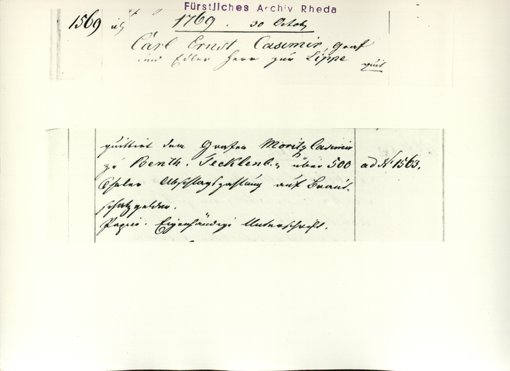 Fürstliches Archiv Rheda
1569 1769. 30 Octob.
Carl Ernst Casimir, Graf
und Edler Herr zur Lippe quit
quittirt dem Grafen Moritz Casimir
zu Benth. Tecklenb. über 500 ad N. 1563.
Thaler Abschlagszahlung auf Braut-
schatzgelder.
Papier. Eigenhändige Unterschrift.